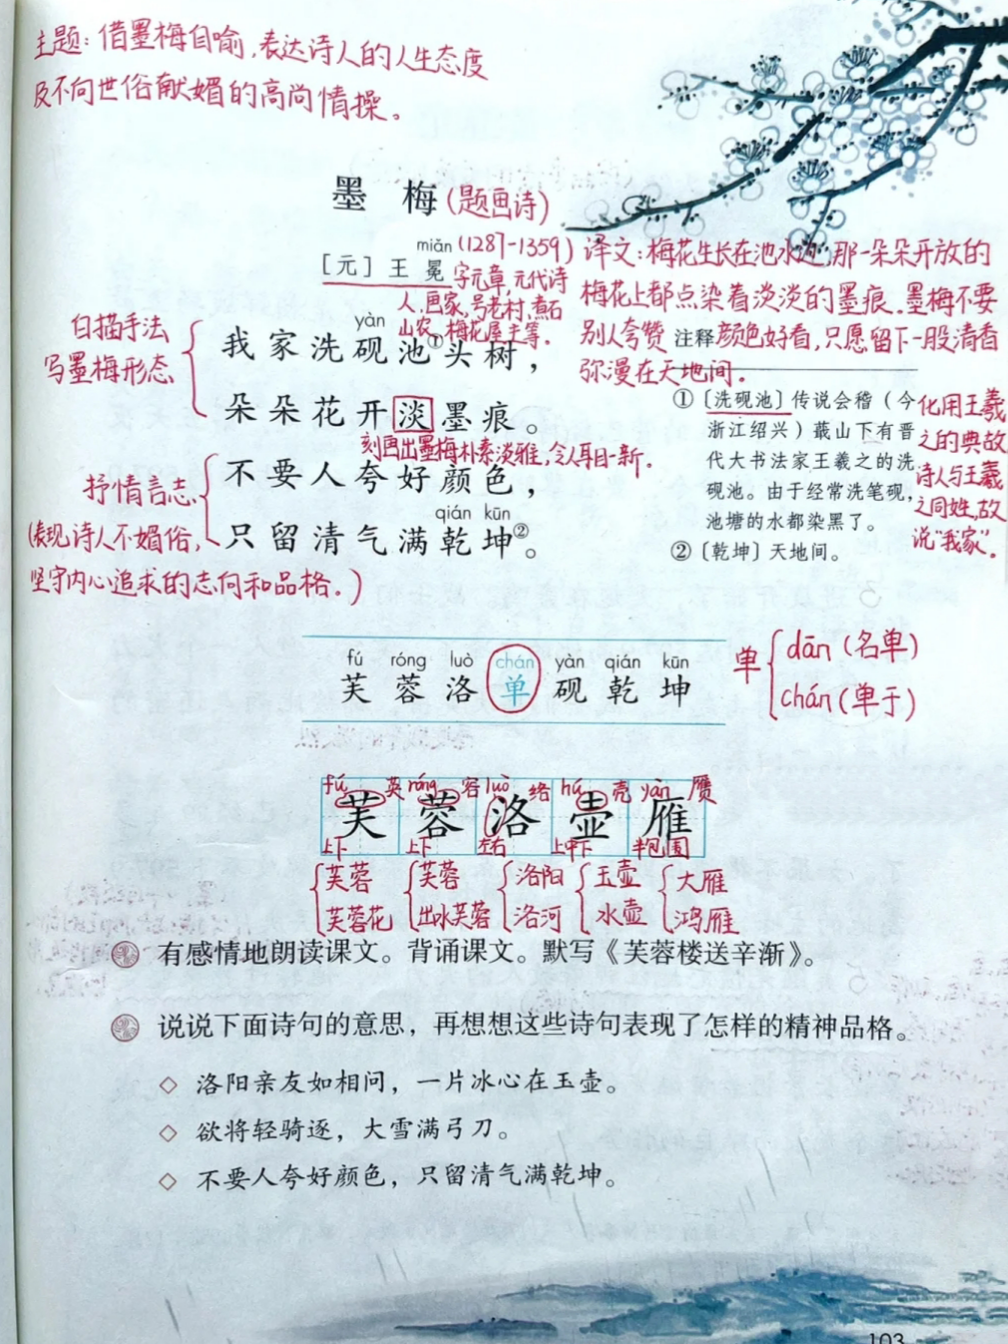 主题：借墨梅自喻，表达诗人的人生态度
及不向世俗献媚的高尚情操。
墨 梅(题画诗)
miǎn (1287-1359)
[元] 王 冕 字元章，元代诗
人，画家，号老村，煮石
山农，梅花屋主等。
译文：梅花生长在池水边，那一朵朵开放的
梅花上都点染着淡淡的墨痕。墨梅不要
别人夸赞 颜色好看，只愿留下一股清香
弥漫在天地间。
注释
白描手法
写墨梅形态
yàn
我家洗砚池①头树，
朵朵花开淡墨痕。
刻画出墨梅朴素淡雅，令人耳目一新。
抒情言志
(表现诗人不媚俗，
坚守内心追求的志向和品格。)
不要人夸好颜色，
qián kūn
只留清气满乾坤②。
①〔洗砚池〕传说会稽（今
浙江绍兴）蕺山下有晋
代大书法家王羲之的洗
砚池。由于经常洗笔砚，
池塘的水都染黑了。
②〔乾坤〕天地间。
化用王羲
之的典故
诗人与王羲
之同姓，故
说“我家”。
fú róng luò chán yàn qián kūn
芙 蓉 洛 单 砚 乾 坤
单 dān (名单)
chán (单于)
fú 英 róng 容 luò 络 hú 壳 yàn 赝
芙 蓉 洛 壶 雁
上下 上下 左右 上中下 半包围
芙蓉 芙蓉 洛阳 玉壶 大雁
芙蓉花 出水芙蓉 洛河 水壶 鸿雁
有感情地朗读课文。背诵课文。默写《芙蓉楼送辛渐》。
说说下面诗句的意思，再想想这些诗句表现了怎样的精神品格。
◇ 洛阳亲友如相问，一片冰心在玉壶。
◇ 欲将轻骑逐，大雪满弓刀。
◇ 不要人夸好颜色，只留清气满乾坤。
103